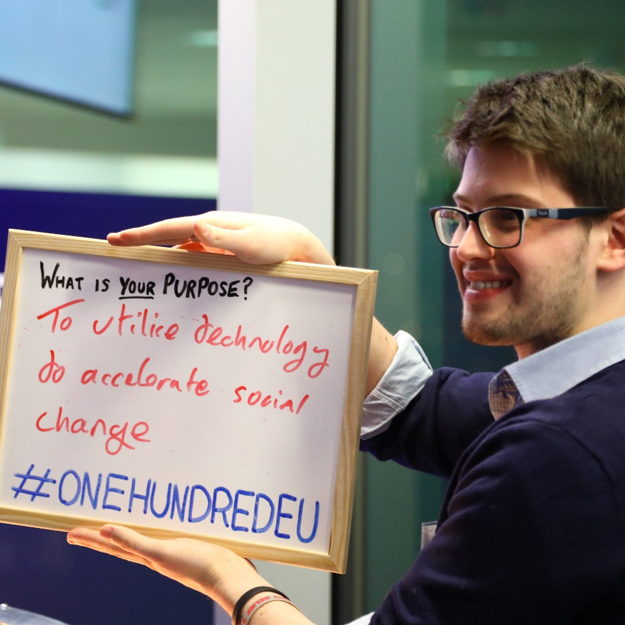 WHAT IS YOUR PURPOSE?
To utilise technology
to accelorate social
change
#ONEHUNDREDEU